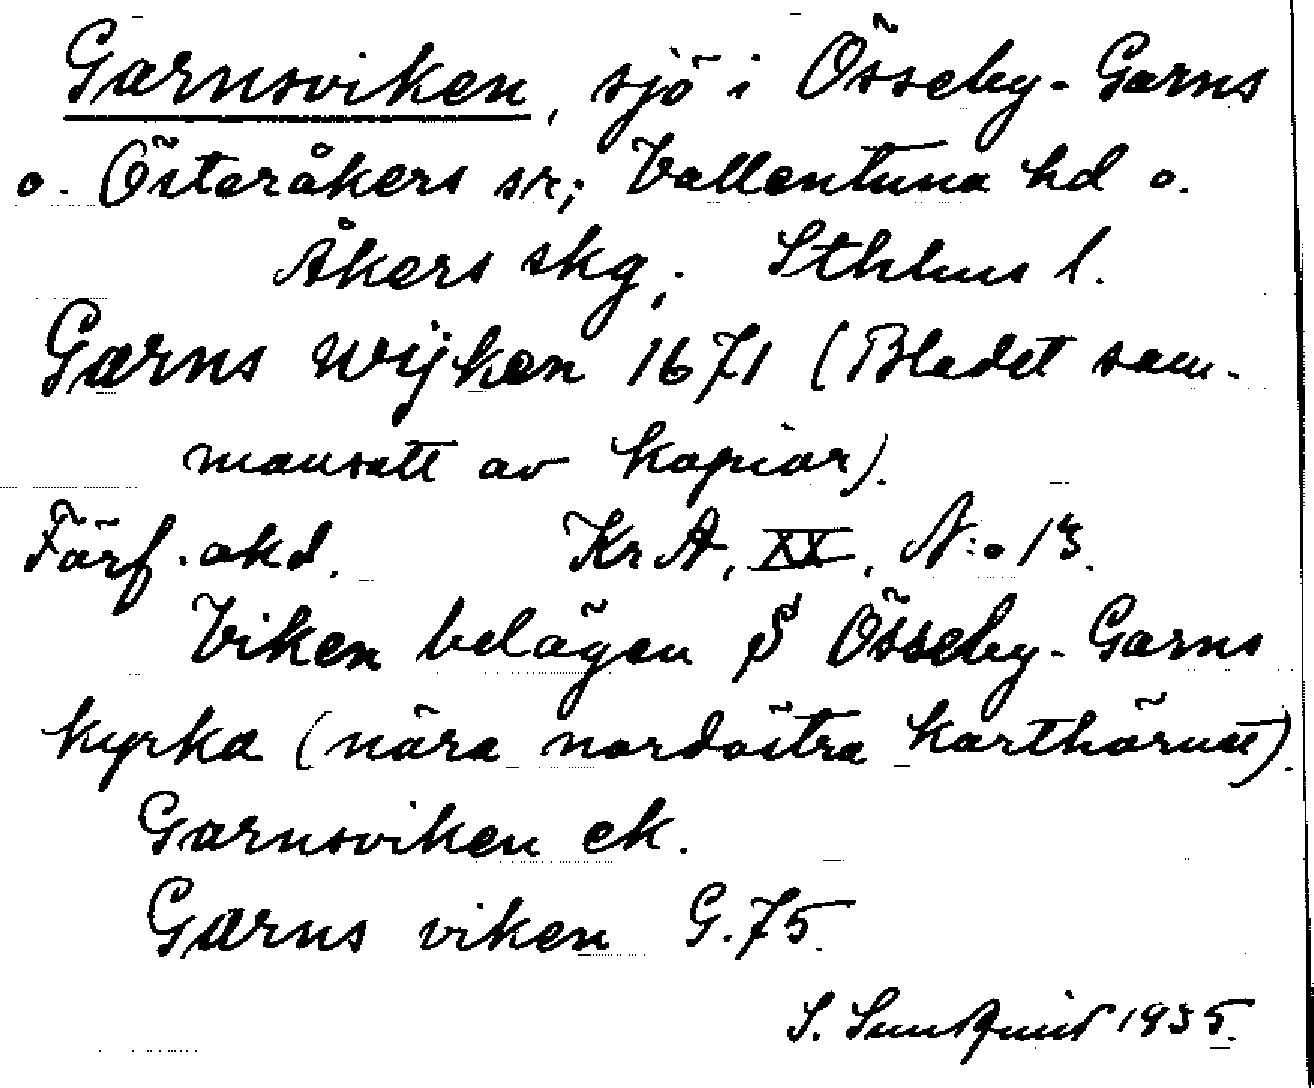 Garnsviken, sjö i Össeby-Garns
o. Österåkers sr; Vallentuna hd o.
Åkers skg; Sthlms l.
Garns Wijken 1671 (Bladet sam-
mansatt av kopior).
Förf. okd. Kr A, XX, N:o 13.
Viken belägen S Össeby-Garns
kyrka (nära nordöstra karthörnet).
Garnsviken ek.
Garns viken G.75.
S. Sundqvist 1935.